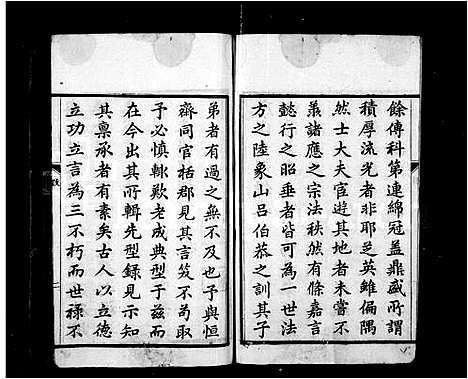 餘傳科第連綿冠蓋鼎盛所謂
積厚流光者非耶芝英雖偏隅
然士大夫官遊其地者未嘗不
羨諸應之宗法秩然有條嘉言
懿行之昭垂者可為一世法
方之陸象山呂伯恭之訓其子
弟者有過之無不及與恒
齋同官栝郡見其言笑不苟取
予必慎輒歎老成典型于茲而
在今出其所輯先型錄見示知
其稟承者有素矣古人以立德
立功立言為三不朽而世祿不